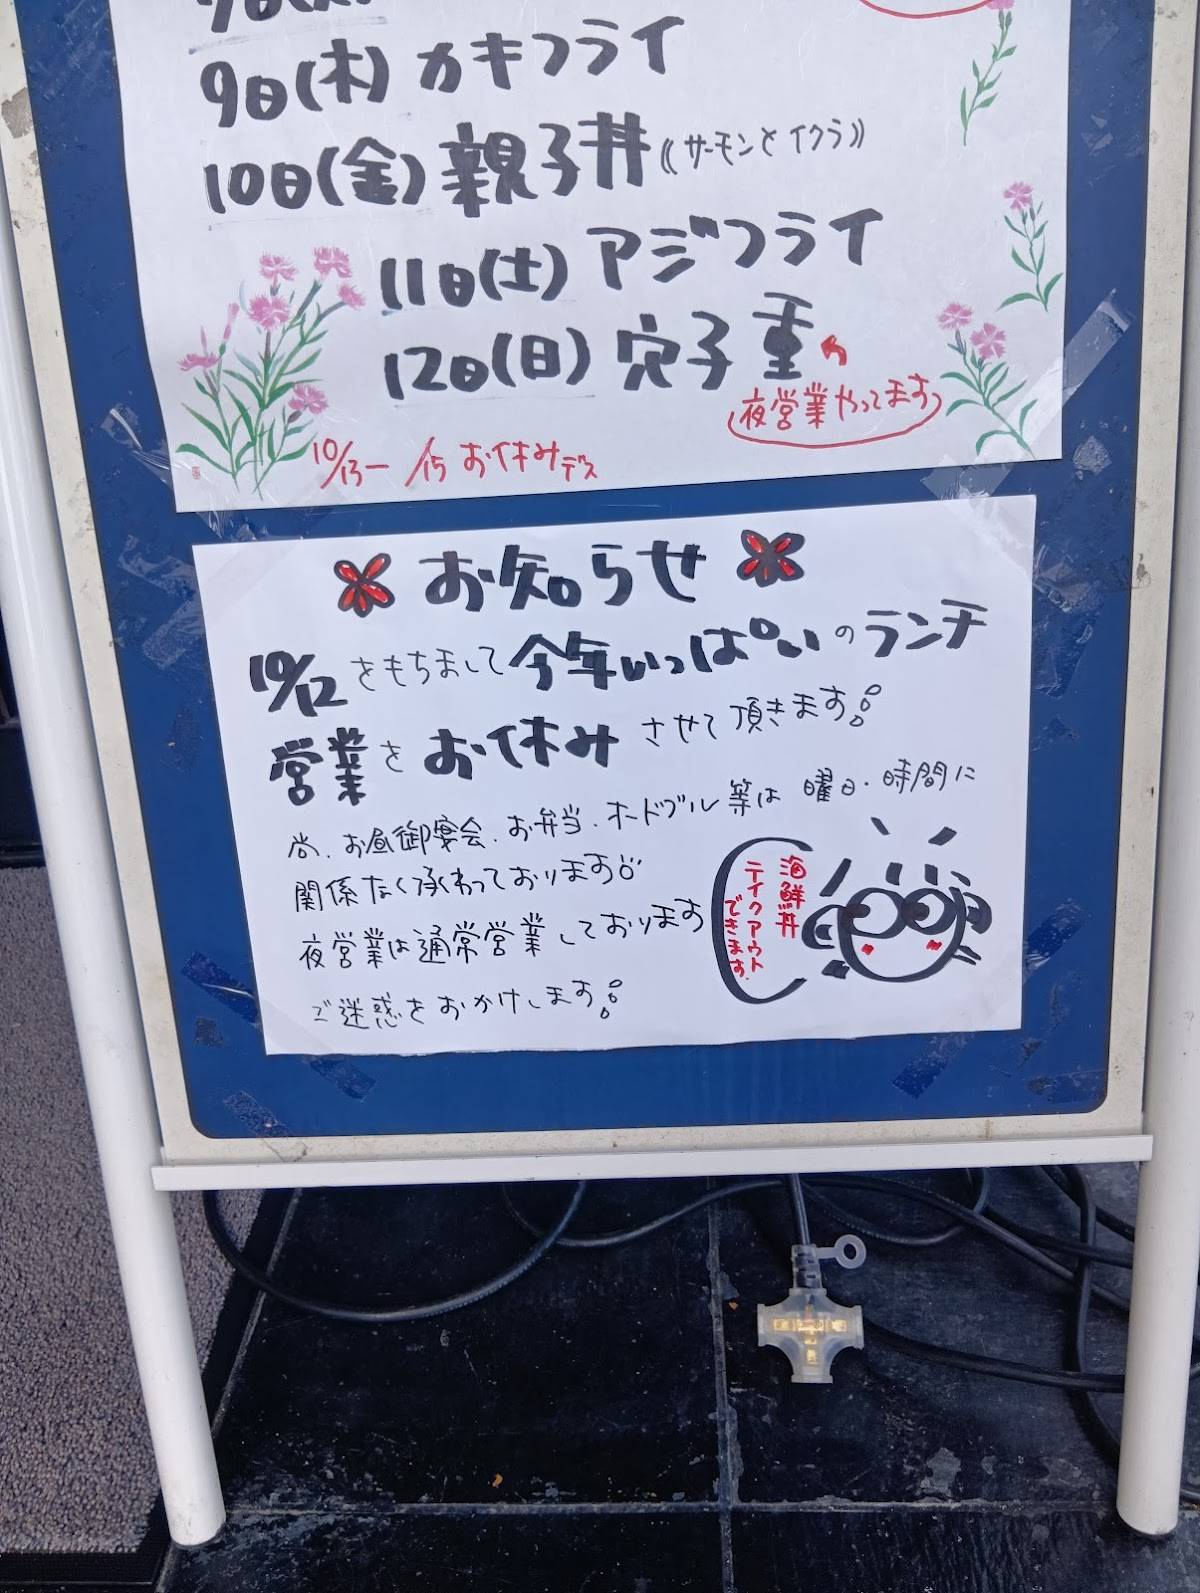 9日(木) カキフライ
10日(金) 親子丼《サーモンとイクラ》
11日(土) アジフライ
12日(日) 穴子重
夜営業やってます
10/13ー/15 お休みデス
お知らせ
10/12をもちまして今年いっぱいのランチ
営業をお休みさせて頂きます。
尚、お昼御宴会、お弁当、オードブル等は曜日・時間に
関係なく承わっております。
夜営業は通常営業しております
ご迷惑をおかけします。
海鮮丼
テイクアウト
できます。